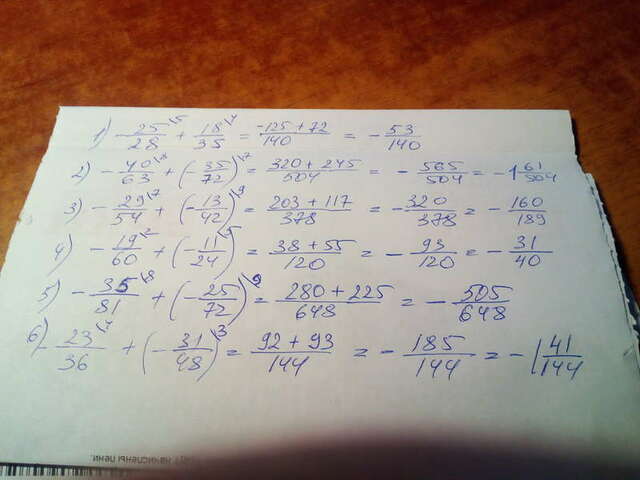 1) -25/28 \5 + 18/35 \4 = -125 + 72/140 = -53/140
2) -40/63 \8 + (-35/72) \7 = 320 + 245/504 = -565/504 = -1 61/504
3) -29/54 \7 + (-13/42) \9 = 203 + 117/378 = -320/378 = -160/189
4) -19/60 \2 + (-11/24) \5 = 38 + 55/120 = -93/120 = -31/40
5) -35/81 \8 + (-25/72) \9 = 280 + 225/648 = -505/648
6) -23/36 \4 + (-31/48) \3 = 92 + 93/144 = -185/144 = -1 41/144
начислены пени.